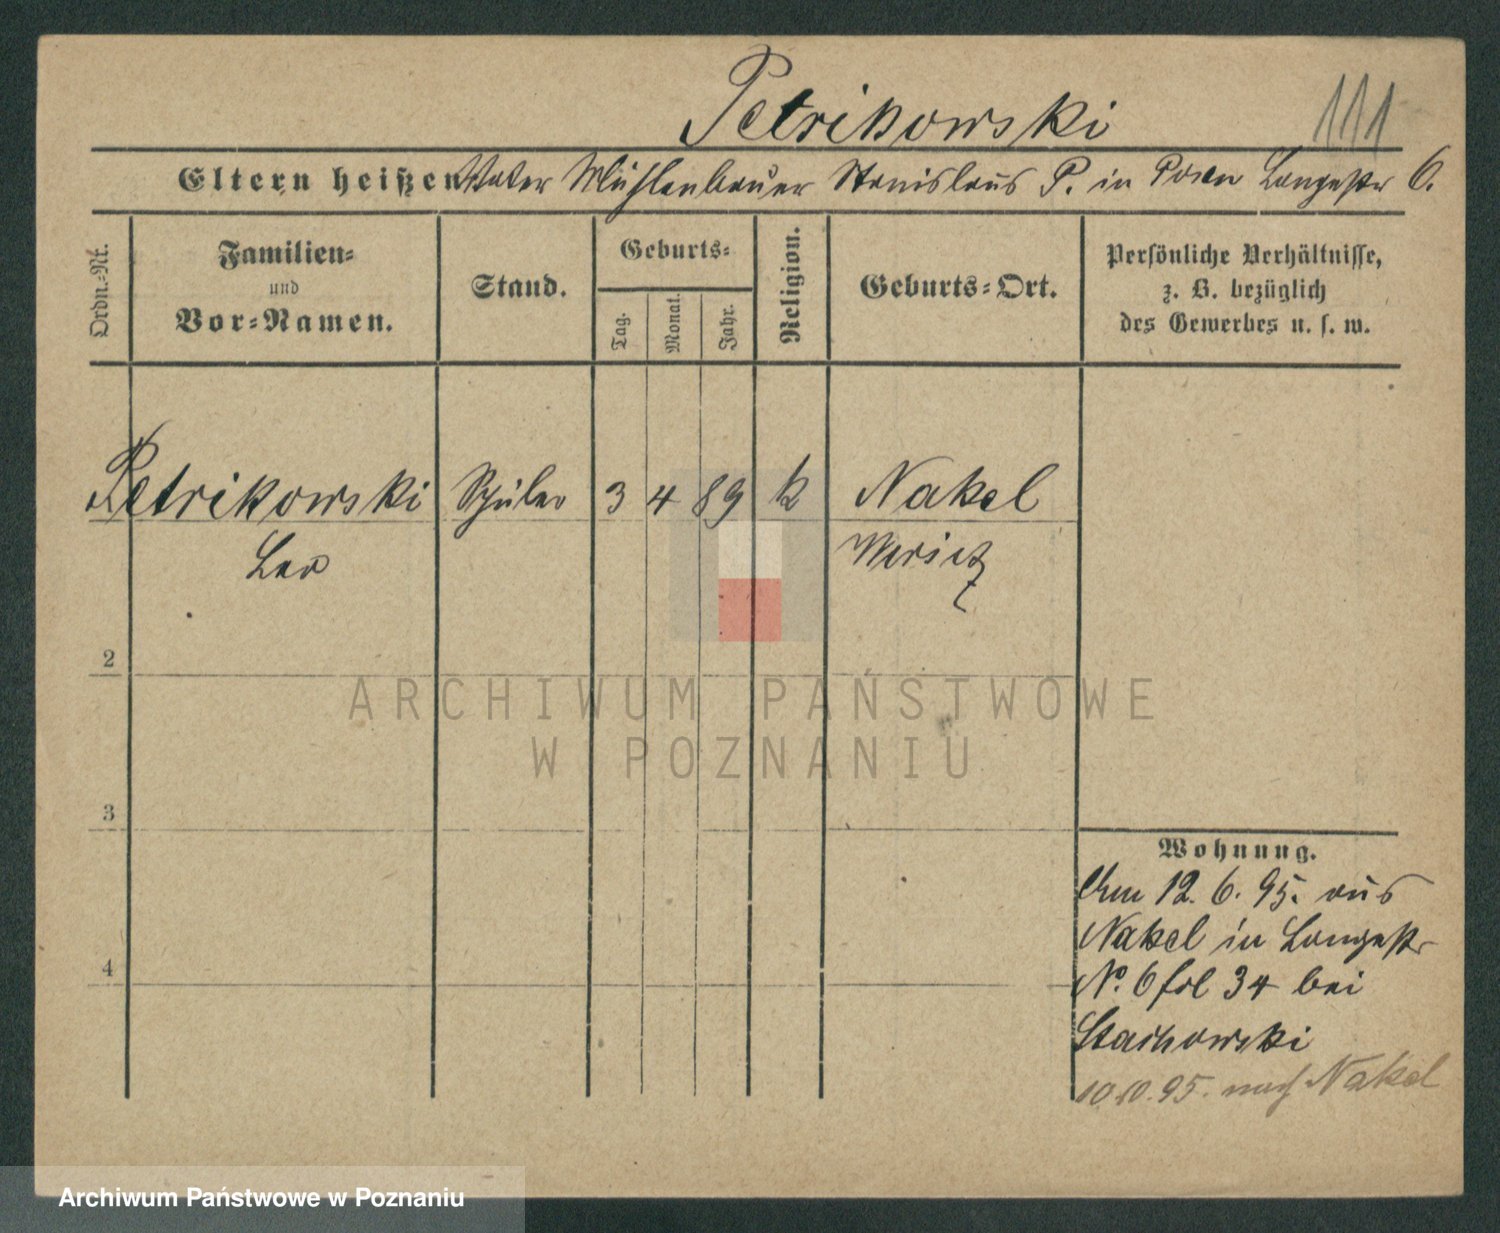 Petrikowski
111
Eltern heißen Vater Mühlenbauer Stanislaus P. in Posen Langestr 6.
Ordn.-Nr.
Familien-
und
Vor-Namen.
Stand.
Geburts-
Tag.
Monat.
Jahr.
Religion.
Geburts-Ort.
Persönliche Verhältnisse,
z. B. bezüglich
des Gewerbes u. s. w.
Petrikowski Schüler 3 4 89 k Nakel
Leo Wirsitz
2
ARCHIWUM PAŃSTWOWE
W POZNANIU
3
4
Wohnung.
Am 12. 6. 95. aus
Nakel in Langestr
No. 6 fol 34 bei
Stachowski
10.10.95. nach Nakel
Archiwum Państwowe w Poznaniu